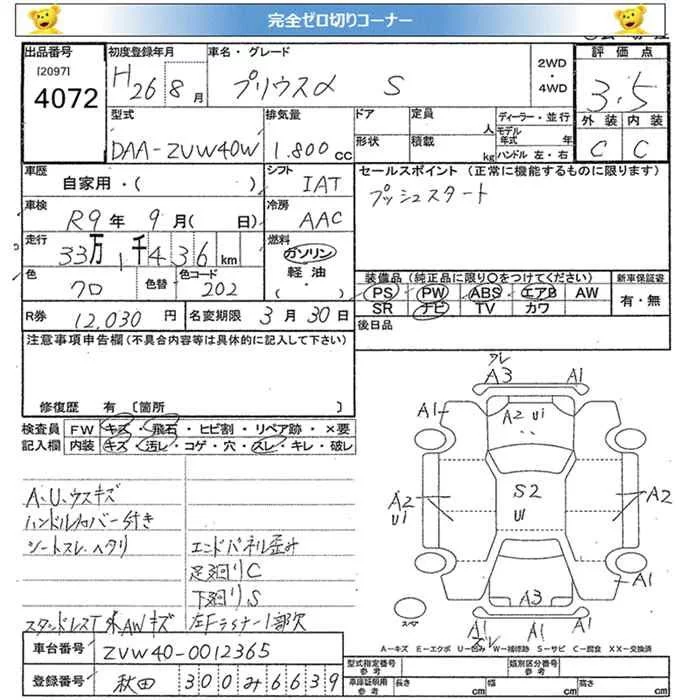 完全ゼロ切りコーナー
出品番号 初度登録年月 車名・グレード 2WD・4WD 評価点
[2097]
4072 H26 8月 プリウスα S 3.5
型式 排気量 ドア 定員 人 ディーラー・並行 外装 内装
DAA-ZVW40W 1.800cc 形状 積載 kg モデル年式 年 ハンドル 左・右 C C
車歴 自家用・( ) シフト IAT セールスポイント (正常に機能するものに限ります)
プッシュスタート
車検 R9年 9月( 日) 冷房 AAC
走行 33万1千436km 燃料 ガソリン 軽油 ・( )
色 クロ 色替 色コード 202
装備品 (純正品に限り○をつけてください) 新車保証書
PS PW ABS エアB AW 有・無
SR ナビ TV カワ
R券 12,030円 名変期限 3月30日 後日品
注意事項申告欄(不具合内容等は具体的に記入して下さい)
修復歴 有 〔箇所 〕
検査員 FW キズ・飛石・ヒビ割・リペア跡・×要
記入欄 内装 キズ・汚レ・コゲ・穴・スレ・キレ・破レ
A、U、ウスキズ
ハンドルカバー付き
シートスレ、ヘタリ エンドパネル歪み
足廻りC
下廻りS
左Fフェンダー1部欠
A3 A1
A1 A2 U1
A2 U1 S2 U1 A2
A3 A1
A1 A1
スペア
A-キズ E-エクボ U-凹み W-補修跡 S-サビ C-腐食 XX-交換済
車台番号 ZVW40-0012365
登録番号 秋田 300み6639
型式指定番号 参考 類別区分番号 参考
車庫証明用 参考 長さ cm 幅 cm 高さ cm